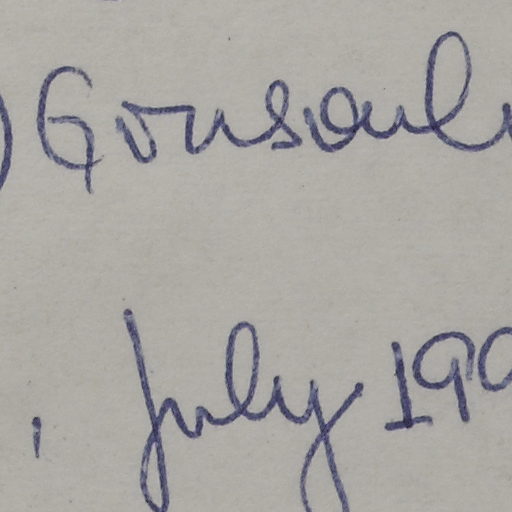 ) Gonsaul
, July 199